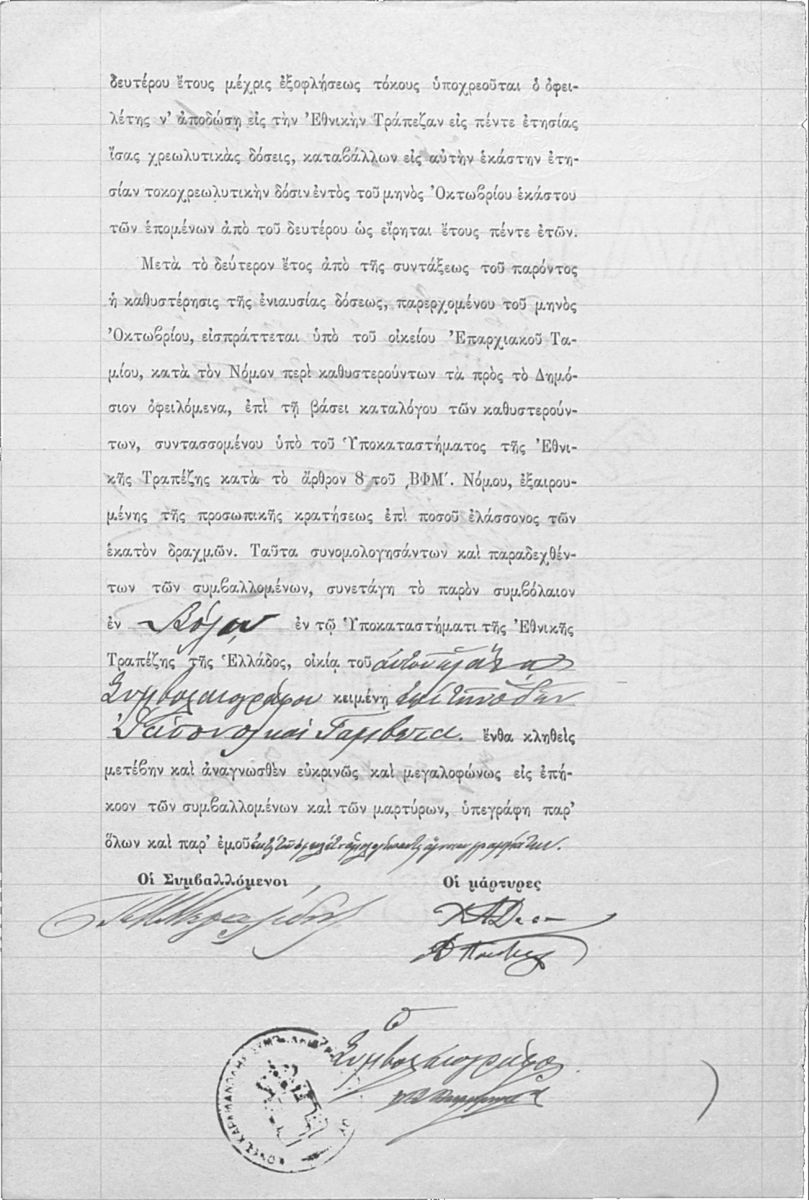 δευτέρου ἔτους μέχρις ἐξοφλήσεως τόκους ὑποχρεοῦται ὁ ὀφει-
λέτης ν' ἀποδώσῃ εἰς τὴν Ἐθνικὴν Τράπεζαν εἰς πέντε ἐτησίας
ἴσας χρεωλυτικὰς δόσεις, καταβάλλων εἰς αὐτὴν ἑκάστην ἐτη-
σίαν τοκοχρεωλυτικὴν δόσιν ἐντὸς τοῦ μηνὸς Ὀκτωβρίου ἑκάστου
τῶν ἑπομένων ἀπὸ τοῦ δευτέρου ὡς εἴρηται ἔτους πέντε ἐτῶν.
Μετὰ τὸ δεύτερον ἔτος ἀπὸ τῆς συντάξεως τοῦ παρόντος
ἡ καθυστέρησις τῆς ἐνιαυσίας δόσεως, παρερχομένου τοῦ μηνὸς
Ὀκτωβρίου, εἰσπράττεται ὑπὸ τοῦ οἰκείου Ἐπαρχιακοῦ Τα-
μίου, κατὰ τὸν Νόμον περὶ καθυστερούντων τὰ πρὸς τὸ Δημό-
σιον ὀφειλόμενα, ἐπὶ τῇ βάσει καταλόγου τῶν καθυστερούν-
των, συντασσομένου ὑπὸ τοῦ Ὑποκαταστήματος τῆς Ἐθνι-
κῆς Τραπέζης κατὰ τὸ ἄρθρον 8 τοῦ ͵ΒΦΜ΄. Νόμου, ἐξαιρου-
μένης τῆς προσωπικῆς κρατήσεως ἐπὶ ποσοῦ ἐλάσσονος τῶν
ἑκατὸν δραχμῶν. Ταῦτα συνομολογησάντων καὶ παραδεχθέν-
των τῶν συμβαλλομένων, συνετάγη τὸ παρὸν συμβόλαιον
ἐν Βόλῳ ἐν τῷ Ὑποκαταστήματι τῆς Ἐθνικῆς
Τραπέζης τῆς Ἑλλάδος, οἰκίᾳ τοῦ
Συμβολαιογράφου κειμένῃ
καὶ Γαμβέτα. ἔνθα κληθεὶς
μετέβην καὶ ἀναγνωσθὲν εὐκρινῶς καὶ μεγαλοφώνως εἰς ἐπή-
κοον τῶν συμβαλλομένων καὶ τῶν μαρτύρων, ὑπεγράφη παρ'
ὅλων καὶ παρ' ἐμοῦ
Οἱ Συμβαλλόμενοι
Οἱ μάρτυρες
Ὁ
Συμβολαιογράφος